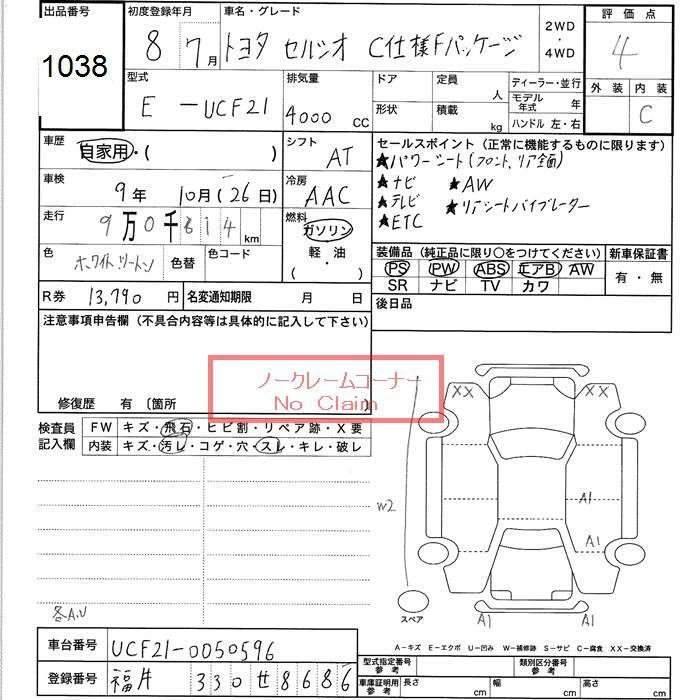 出品番号
1038
初度登録年月
8 7月
車名・グレード
トヨタ セルシオ C仕様Fパッケージ
2WD
・
4WD
評価点
4
外装 内装
C
型式
E -UCF21
排気量
4000 cc
ドア
定員
人
形状
積載
kg
ディーラー・並行
モデル年式 年
ハンドル 左・右
車歴
自家用・( )
シフト
AT
車検
9年 10月(26日)
冷房
AAC
走行
9万0千814km
燃料
ガソリン
軽・油
( ・ )
色
ホワイトツートン
色替
色コード
R券 13,790 円
名変通知期限 月 日
セールスポイント(正常に機能するものに限ります)
★パワーシート(フロント、リア全面)
★ナビ ★AW
★テレビ ★リアシートバイブレーター
★ETC
装備品(純正品に限り○をつけてください)
PS PW ABS エアB AW
SR ナビ TV カワ
新車保証書
有・無
後日品
注意事項申告欄(不具合内容等は具体的に記入して下さい)
ノークレームコーナー
No Claim
修復歴 有 〔箇所
検査員記入欄
FW キズ・飛石・ヒビ割・リペア跡・X要
内装 キズ・汚レ・コゲ・穴・スレ・キレ・破レ
XX XX
W2
A1
A1
A1 A1
スペア
各A.U
A-キズ E-エクボ U-凹み W-補修跡 S-サビ C-腐食 XX-交換済
車台番号 UCF21-0050596
登録番号 福井 330せ8686
型式指定番号 参考
類別区分番号 参考
車庫証明用 参考
長さ cm
幅 cm
高さ cm